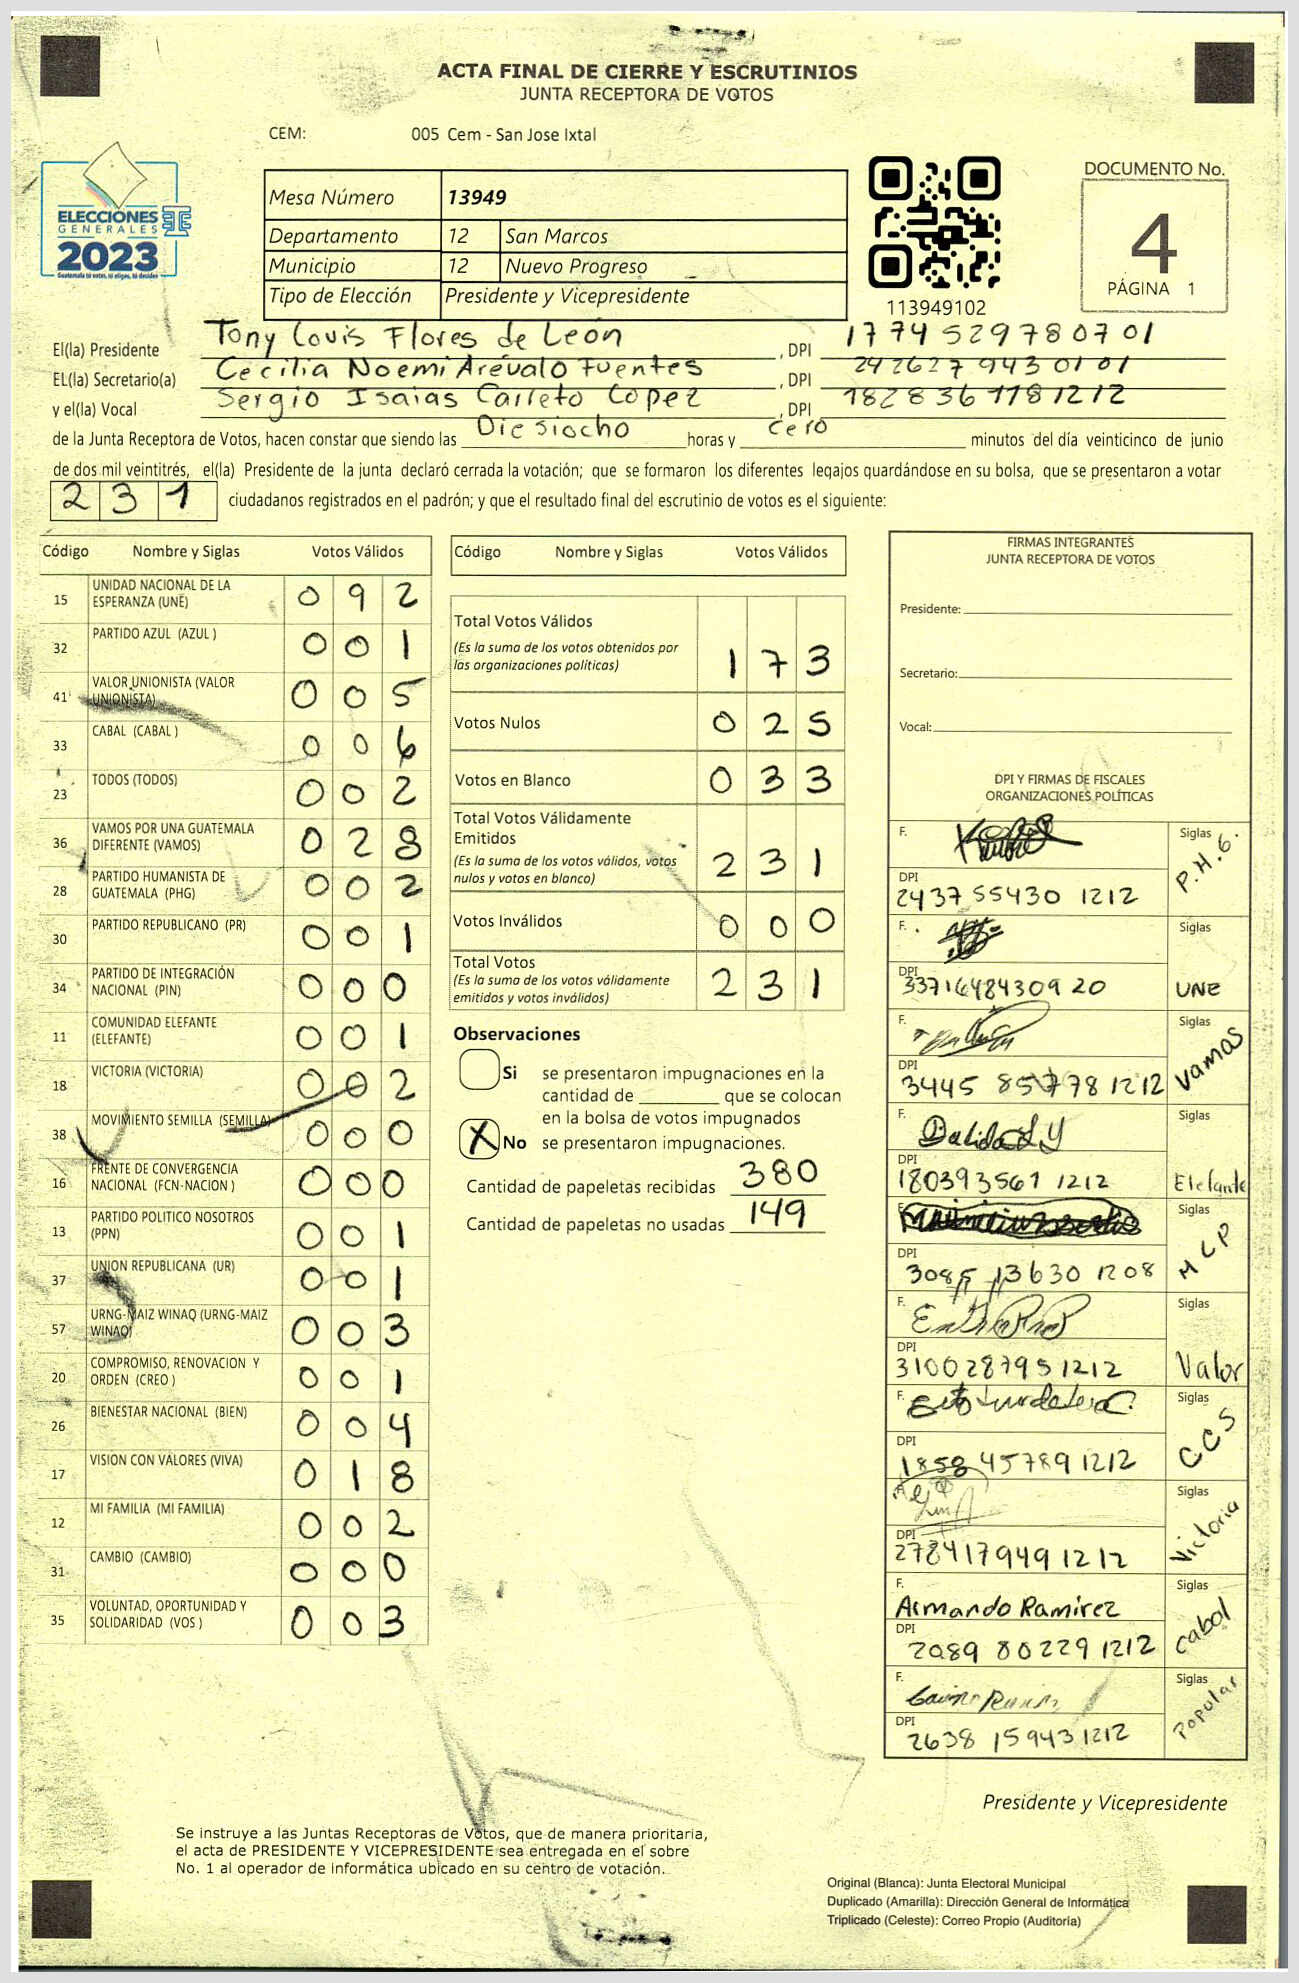 ACTA FINAL DE CIERRE Y ESCRUTINIOS
JUNTA RECEPTORA DE VOTOS
CEM: 005 Cem - San Jose Ixtal
ELECCIONES
GENERALES
2023
Guatemala tú votas, tú eliges, tú decides
Mesa Número 13949
Departamento 12 San Marcos
Municipio 12 Nuevo Progreso
Tipo de Elección Presidente y Vicepresidente
113949102
DOCUMENTO No.
4
PÁGINA 1
El(la) Presidente Tony Louis Flores de León , DPI 1774529780701
EL(la) Secretario(a) Cecilia Noemi Arévalo Fuentes , DPI 2426279430101
y el(la) Vocal Sergio Isaias Carreto Lopez , DPI 1828361181212
de la Junta Receptora de Votos, hacen constar que siendo las Diesiocho horas y cero minutos del día veinticinco de junio
de dos mil veintitrés, el(la) Presidente de la junta declaró cerrada la votación; que se formaron los diferentes legajos guardándose en su bolsa, que se presentaron a votar
231 ciudadanos registrados en el padrón; y que el resultado final del escrutinio de votos es el siguiente:
Código Nombre y Siglas Votos Válidos
15 UNIDAD NACIONAL DE LA ESPERANZA (UNE) 092
32 PARTIDO AZUL (AZUL ) 001
41 VALOR UNIONISTA (VALOR UNIONISTA) 005
33 CABAL (CABAL ) 006
23 TODOS (TODOS) 002
36 VAMOS POR UNA GUATEMALA DIFERENTE (VAMOS) 028
28 PARTIDO HUMANISTA DE GUATEMALA (PHG) 002
30 PARTIDO REPUBLICANO (PR) 001
34 PARTIDO DE INTEGRACIÓN NACIONAL (PIN) 000
11 COMUNIDAD ELEFANTE (ELEFANTE) 001
18 VICTORIA (VICTORIA) 002
38 MOVIMIENTO SEMILLA (SEMILLA) 000
16 FRENTE DE CONVERGENCIA NACIONAL (FCN-NACION ) 000
13 PARTIDO POLITICO NOSOTROS (PPN) 001
37 UNION REPUBLICANA (UR) 001
57 URNG-MAIZ WINAQ (URNG-MAIZ WINAQ) 003
20 COMPROMISO, RENOVACION Y ORDEN (CREO ) 001
26 BIENESTAR NACIONAL (BIEN) 004
17 VISION CON VALORES (VIVA) 018
12 MI FAMILIA (MI FAMILIA) 002
31 CAMBIO (CAMBIO) 000
35 VOLUNTAD, OPORTUNIDAD Y SOLIDARIDAD (VOS ) 003
Código Nombre y Siglas Votos Válidos
Total Votos Válidos 173
(Es la suma de los votos obtenidos por
las organizaciones políticas)
Votos Nulos 025
Votos en Blanco 033
Total Votos Válidamente
Emitidos 231
(Es la suma de los votos válidos, votos
nulos y votos en blanco)
Votos Inválidos 000
Total Votos 231
(Es la suma de los votos válidamente
emitidos y votos inválidos)
Observaciones
Si se presentaron impugnaciones en la
cantidad de ________ que se colocan
en la bolsa de votos impugnados
X No se presentaron impugnaciones.
Cantidad de papeletas recibidas 380
Cantidad de papeletas no usadas 149
FIRMAS INTEGRANTES
JUNTA RECEPTORA DE VOTOS
Presidente:
Secretario:
Vocal:
DPI Y FIRMAS DE FISCALES
ORGANIZACIONES POLÍTICAS
F. Siglas P.H.G.
DPI 2437 55430 1212
F. Siglas UNE
DPI 3371648430920
F. Siglas Vamos
DPI 3445 85778 1212
F. Siglas Elefante
DPI 180393561 1212
F. Siglas MLP
DPI 3085 13630 1208
F. Siglas Valor
DPI 3100287951212
F. Siglas CCS
DPI 1858 45789 1212
F. Siglas Victoria
DPI 2784179491212
F. Armando Ramirez Siglas Cabal
DPI 2089 80229 1212
F. Siglas Popular
DPI 2638 15943 1212
Presidente y Vicepresidente
Se instruye a las Juntas Receptoras de Votos, que de manera prioritaria,
el acta de PRESIDENTE Y VICEPRESIDENTE sea entregada en el sobre
No. 1 al operador de informática ubicado en su centro de votación.
Original (Blanca): Junta Electoral Municipal
Duplicado (Amarilla): Dirección General de Informática
Triplicado (Celeste): Correo Propio (Auditoría)